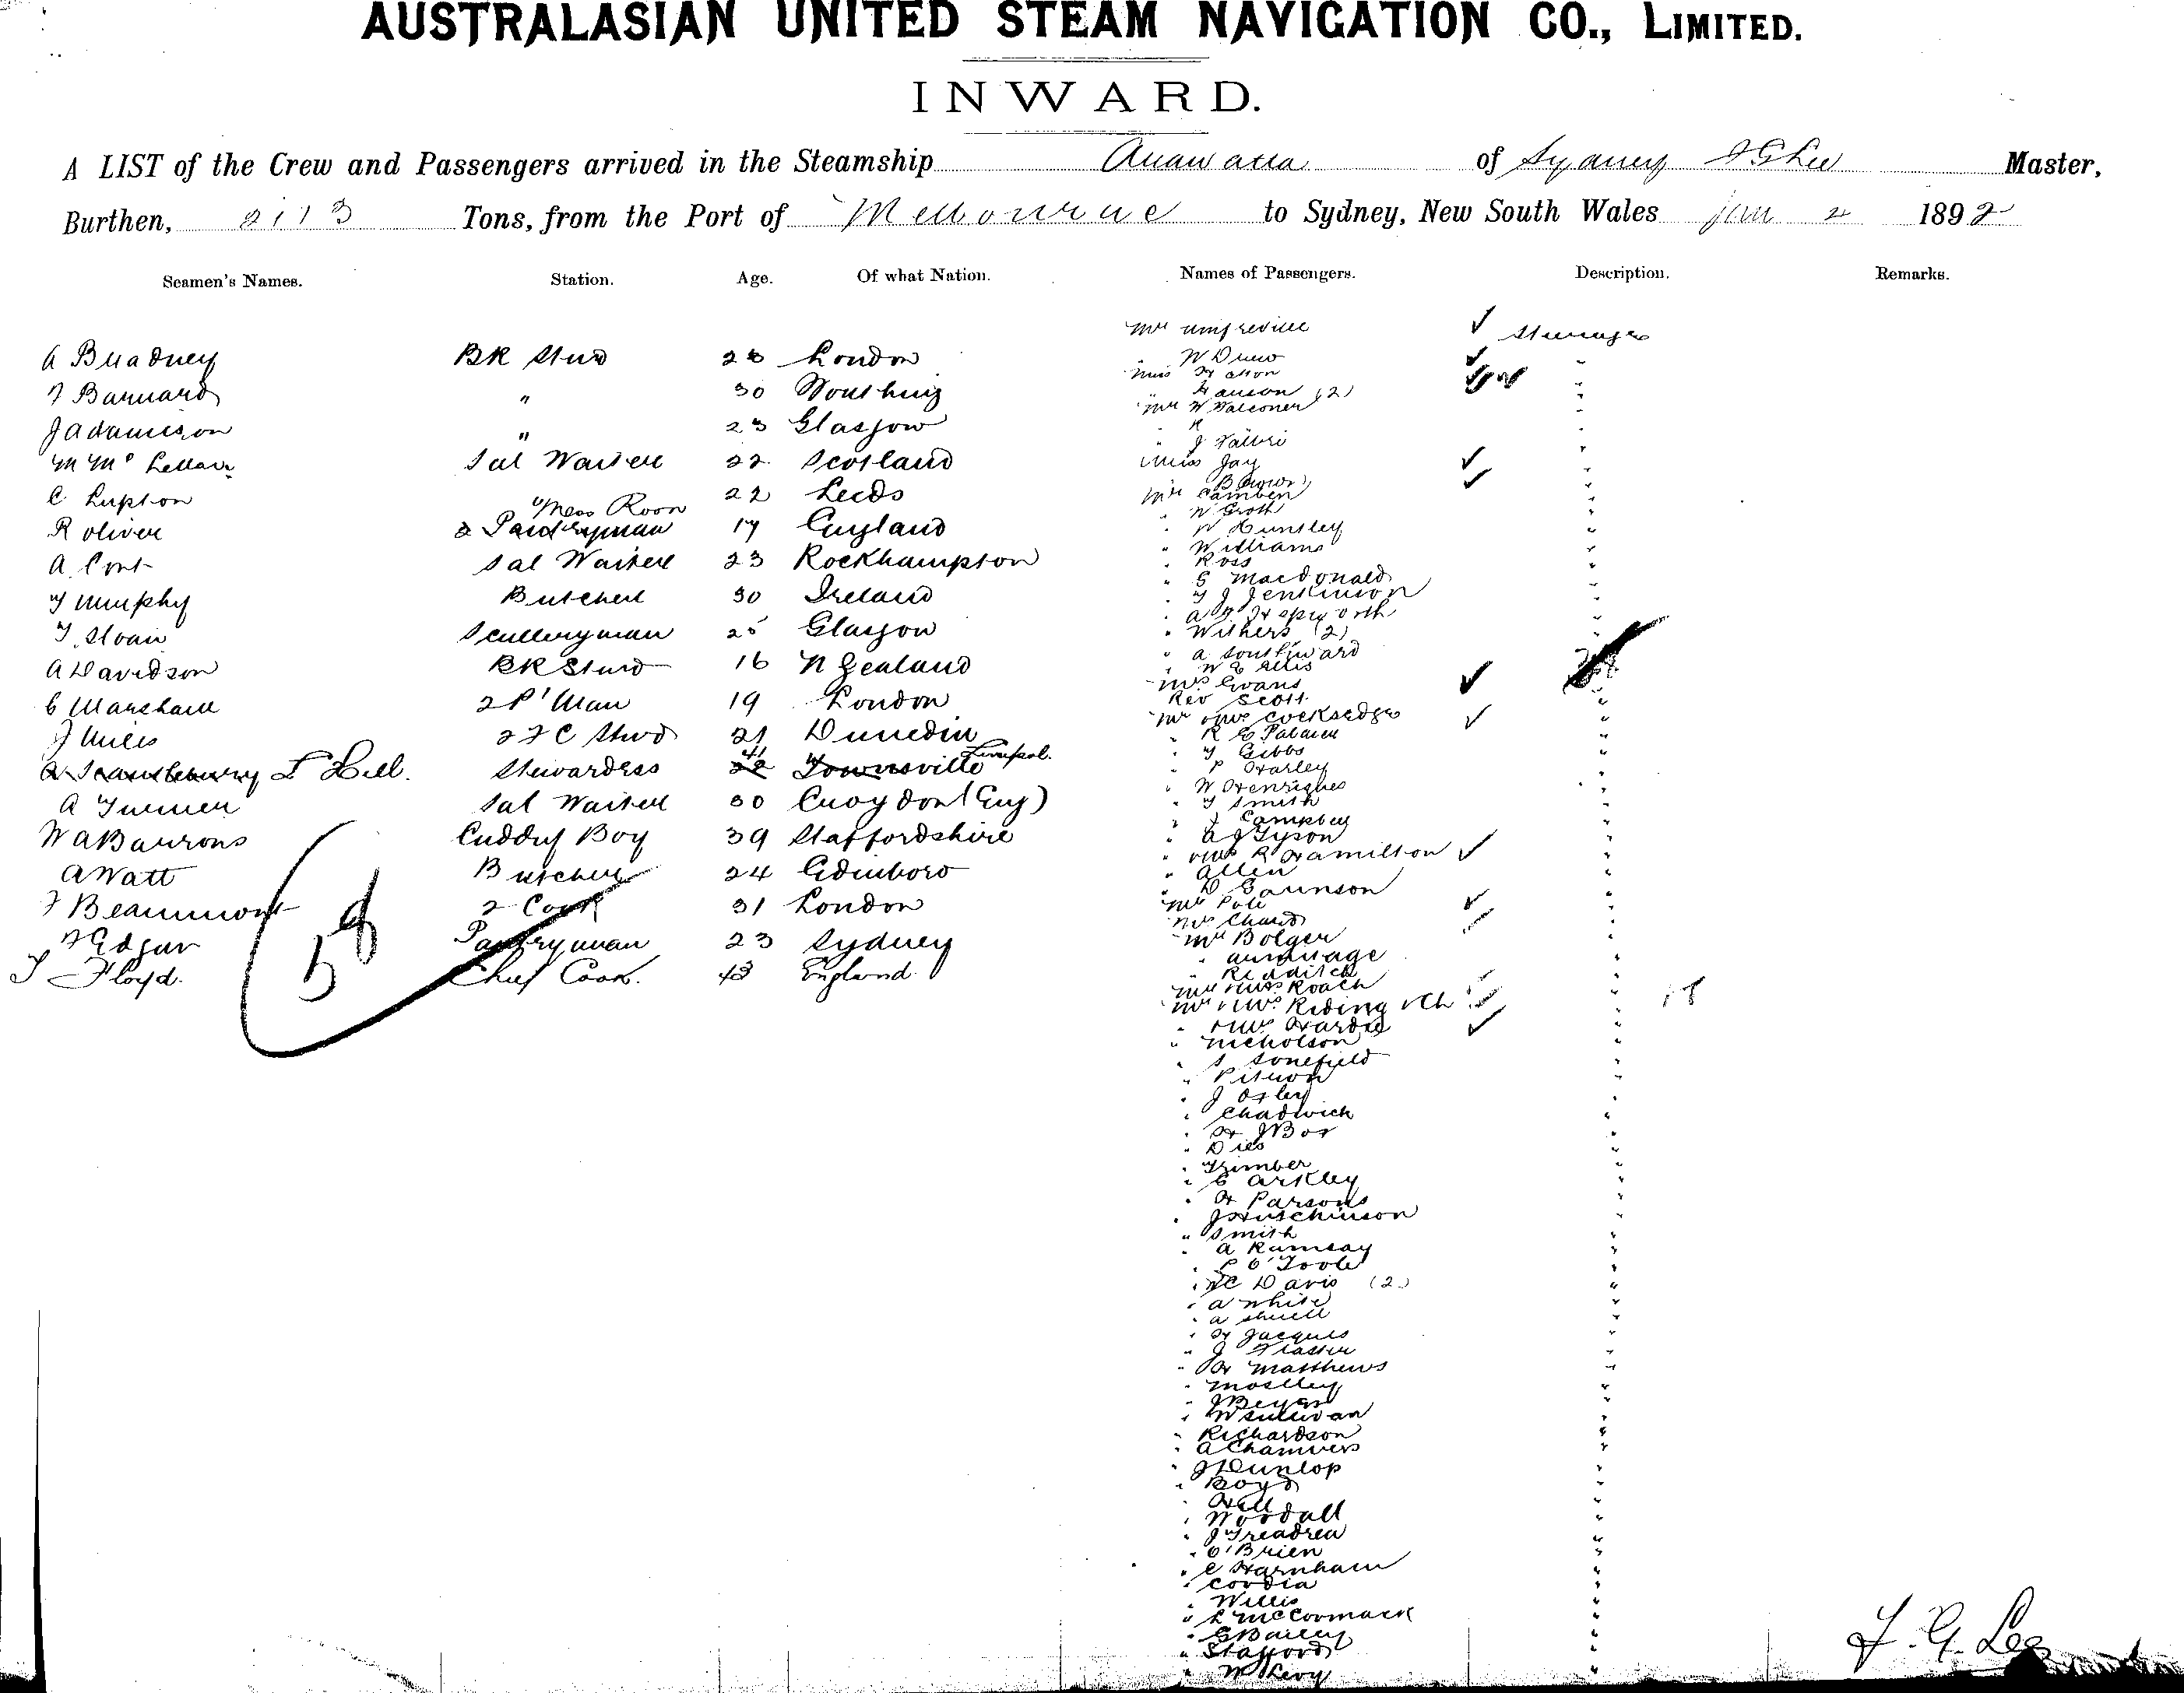 AUSTRALASIAN UNITED STEAM NAVIGATION CO., LIMITED.
INWARD.
A LIST of the Crew and Passengers arrived in the Steamship of Sydney Master,
Burthen, 2113 Tons, from the Port of Melbourne to Sydney, New South Wales Jan 2 1892
Seamen's Names. Station. Age. Of what Nation. Names of Passengers. Description. Remarks.
BR Stwd 28 London
Barnard " 30
J Adamson " 23 Glasgow
Sal Waiter 22 Scotland
C. Lupton Mess Room 22 Leeds
R Oliver 2 Pantryman 17 England
A. Sal Waiter 23 Rockhampton
T Murphy Butcher 30 Ireland
T. Sloan Sculleryman 25 Glasgow
A Davidson BR Stwd 16 N Zealand
C Marshall 2 P'Man 19 London
J Miles 2 F C Stwd 21 Dunedin
L Hill. Stewardess 41 Liverpool.
A Turner Sal Waiter 30 Croydon (Eng)
W A Barrons Cuddy Boy 39 Staffordshire
A Watt Butcher 24 Edinboro
F Beaumont 2 Cook 31 London
Edgar Pantryman 23 Sydney
T Floyd. Chief Cook. 43 England.
58
Mr Umfreville Steerage
Miss
(2)
Mr W Falconer
Miss Jay
Brown
Mr Camben
W Groth
W Hunsley
Williams
Ross
G Macdonald
T J Jenkinson
Withers (2)
A Southward
W E Ellis
Mrs Evans
Rev Scott
Mr & Mrs Cocksedge
R E Palmer
T Gibbs
P Harley
W Henriques
T Smith
J Campbell
A J Tyson
& Mrs R Hamilton
Allen
D Gaunson
Mr Pole
Mrs Chard
Mr Bolger
Armitage
Redditch
Mr & Mrs Roach
Mr & Mrs Riding & Ch
& Mrs Hardie
Nicholson
S Sonefield
J Oxley
Chadwick
H J Box
Dies
Trimber
E Arkley
H Parsons
J Hutchinson
Smith
A Ramsay
P O'Toole
W C Davis (2)
A White
A Shiell
H Jacques
J Fraser
H Matthews
Moseley
W Sullivan
Richardson
A Chambers
J Dunlop
Boyd
Hill
Woodall
J Treadrea
O'Brien
C Harnham
Cordia
Willis
L McCormack
G Bailey
Stafford
W Levy
F. G. Lee